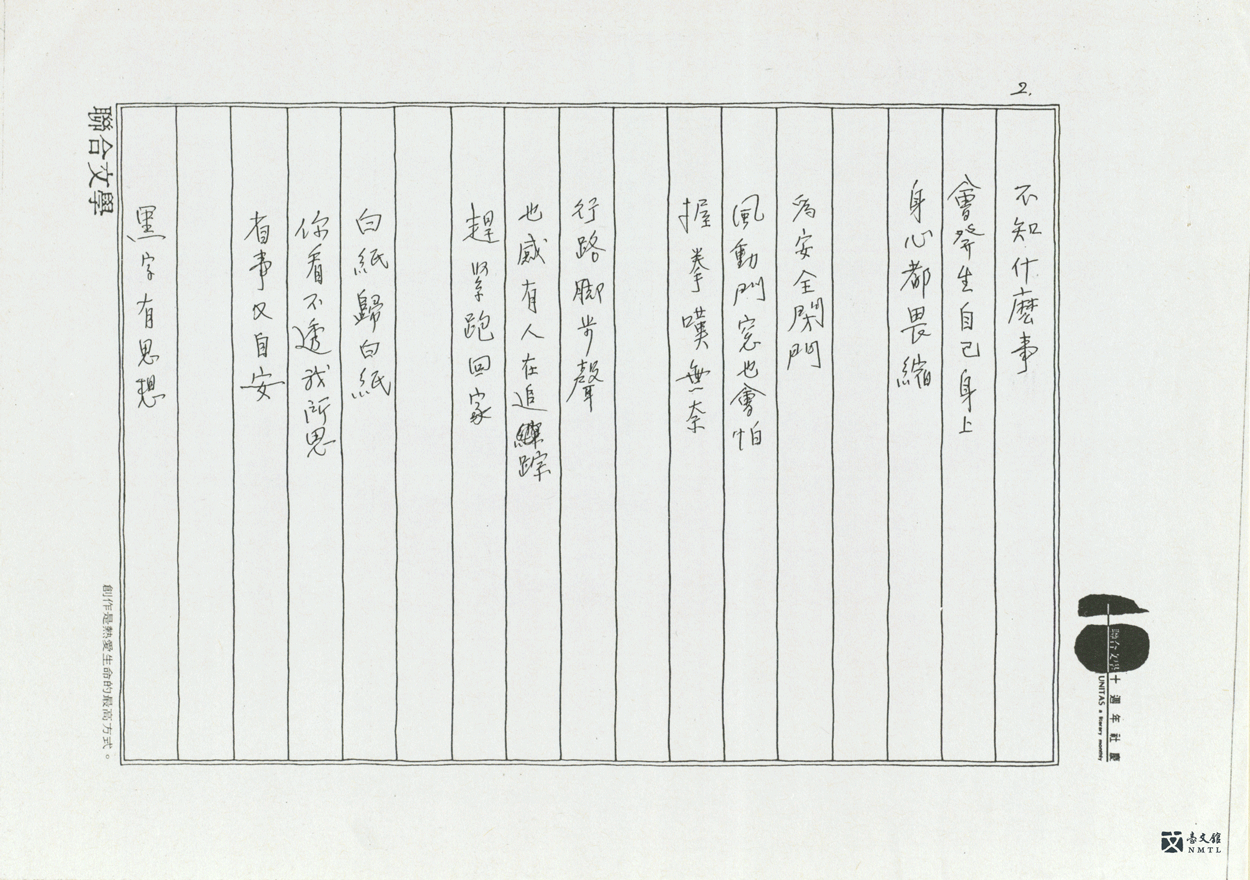 2.
不知什麼事
會發生自己身上
身心都畏縮
為安全閉門
風動門窓也會怕
握拳嘆無奈
行路脚步聲
也感有人在追踪
趕緊跑回家
白紙歸白紙
你看不透我所思
省事又自安
黑字有思想
聯合文學
創作是熱愛生命的最高方式。
10
聯合文學十週年社慶
UNITAS a literary monthly
台文館
NMTL